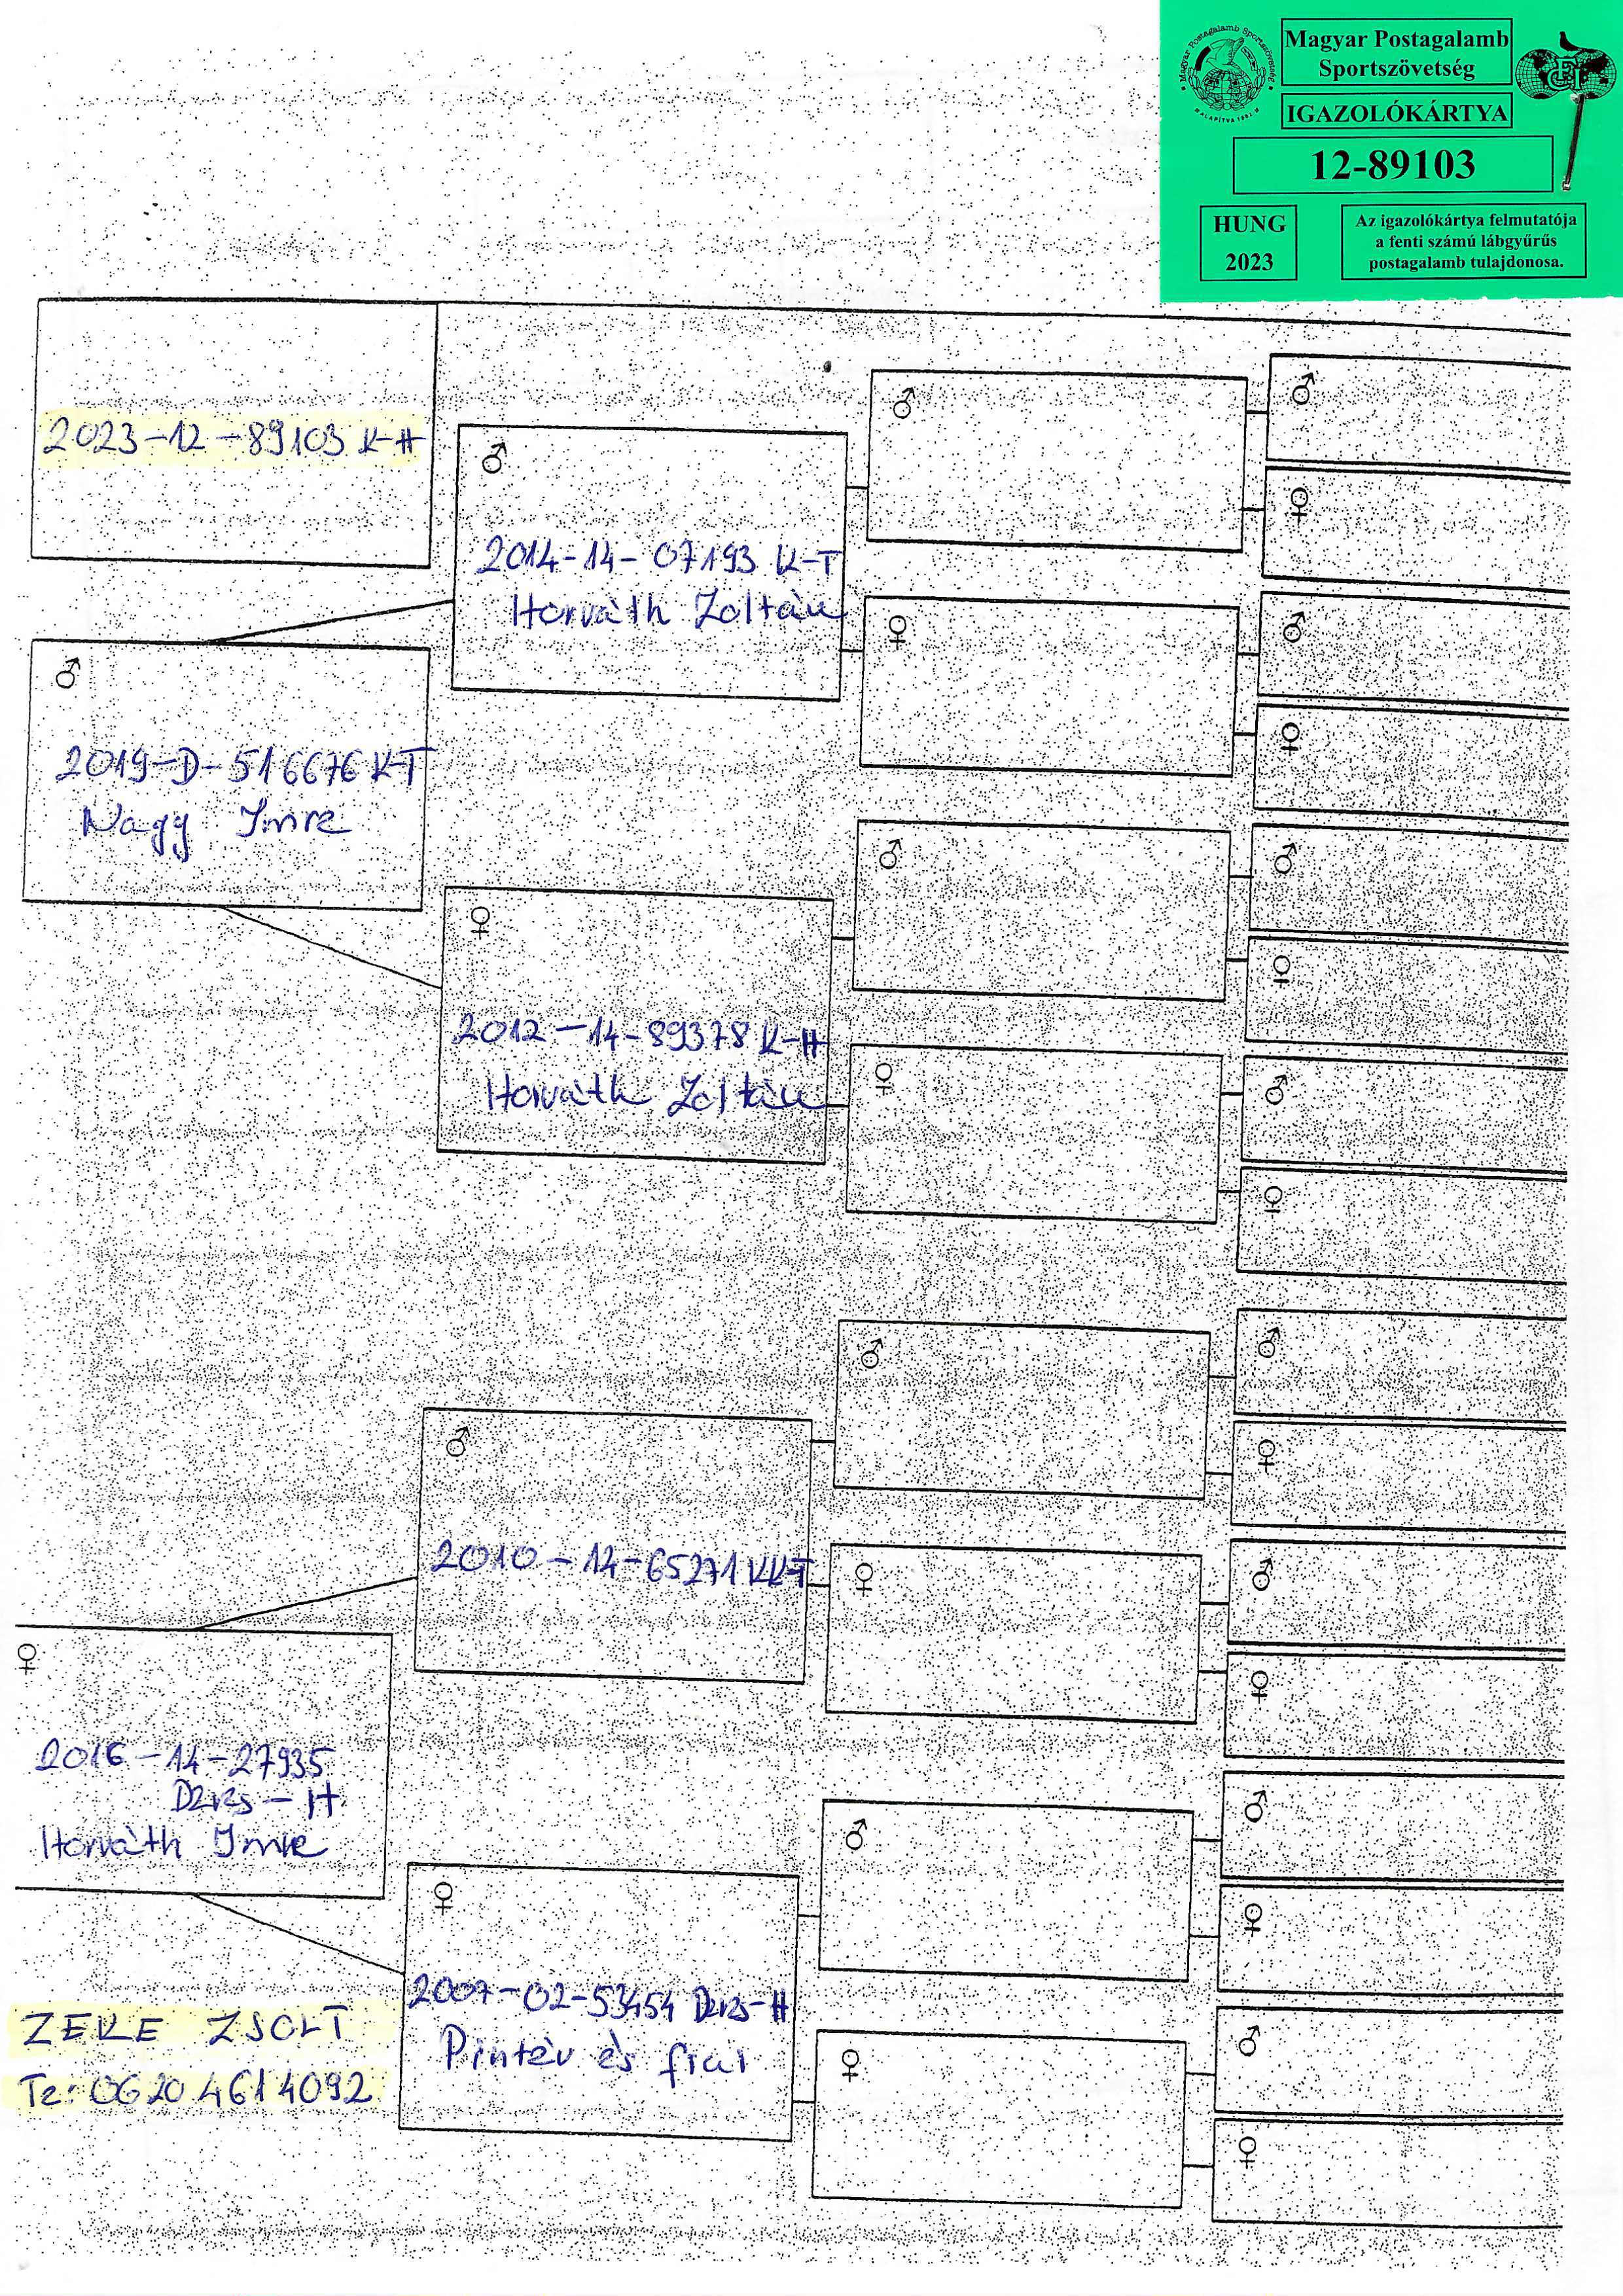 Magyar Postagalamb Sportszövetség
ALAPÍTVA 1882
Magyar Postagalamb
Sportszövetség
FCI
IGAZOLÓKÁRTYA
12-89103
HUNG
2023
Az igazolókártya felmutatója
a fenti számú lábgyűrűs
postagalamb tulajdonosa.
2023-12-89103 K-H
♂
2014-14-07193 K-T
Horváth Zoltán
♂
2019-D-516676 KT
Nagy Imre
♀
2012-14-89378 K-H
Horváth Zoltán
♂
2010-14-65271 KK-T
♀
2016-14-27935
Dzvzs-H
Horváth Imre
♀
2007-02-53454 Dzvzs-H
Pintér és fiai
ZEKE ZSOLT
Te: 06 20 461 4092